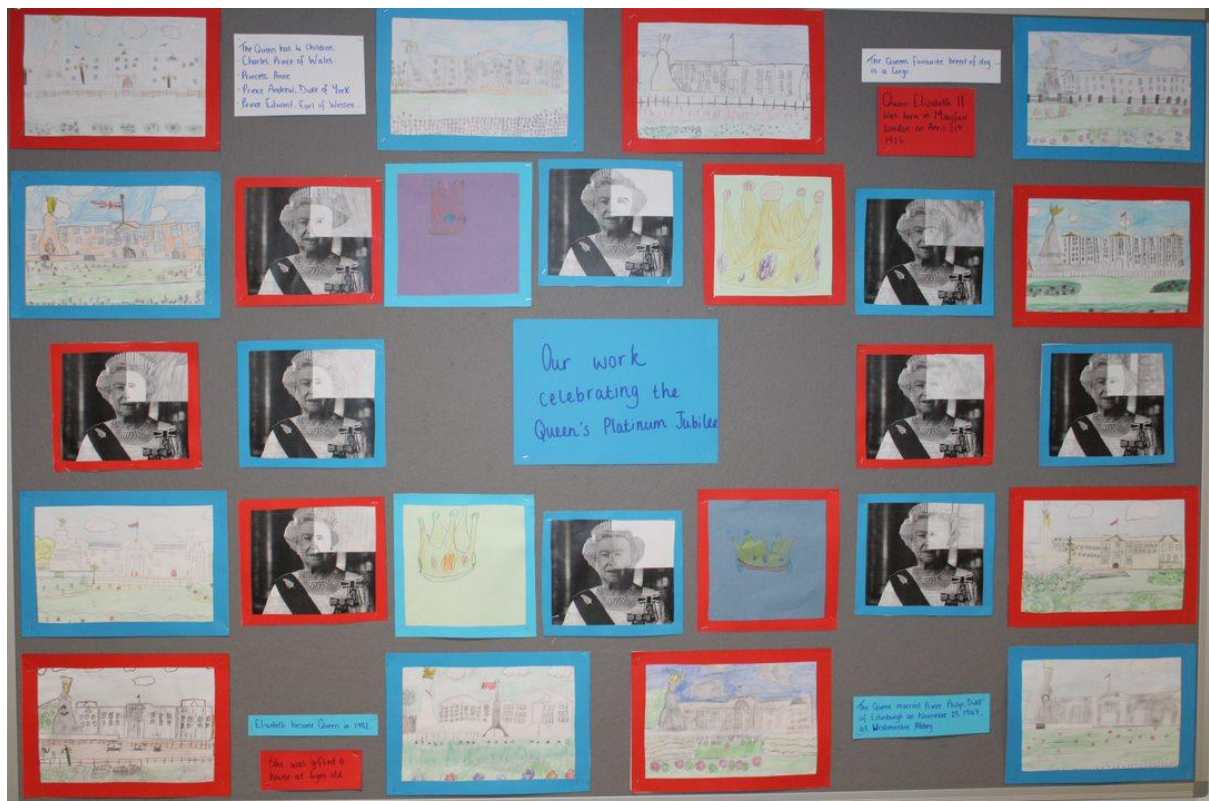 The Queen has 4 Children.
- Charles, Prince of Wales.
- Princess Anne
- Prince Andrew, Duke of York
- Prince Edward, Earl of Wessex.
The Queens favourite breed of dog
is a Corgi
Queen Elizabeth II
was born in Mayfair
London on April 21st
1926
Our work
celebrating the
Queen's Platinum Jubilee
Elizabeth became Queen in
She was gifted a
house at 6yrs old.
The Queen married Prince Philip, Duke
of Edinburgh on November 1947,
at Westminster Abbey